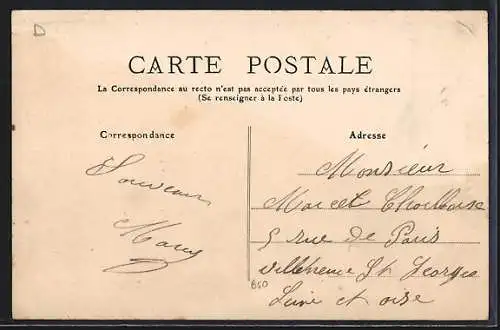 D
CARTE POSTALE
La Correspondance au recto n'est pas acceptée par tous les pays étrangers
(Se renseigner à la Poste)
Correspondance
Adresse
Souvenir
Marcy
Monsieur
Marcel
5 rue de Paris
Villeneuve St Georges
Seine et oise
B50